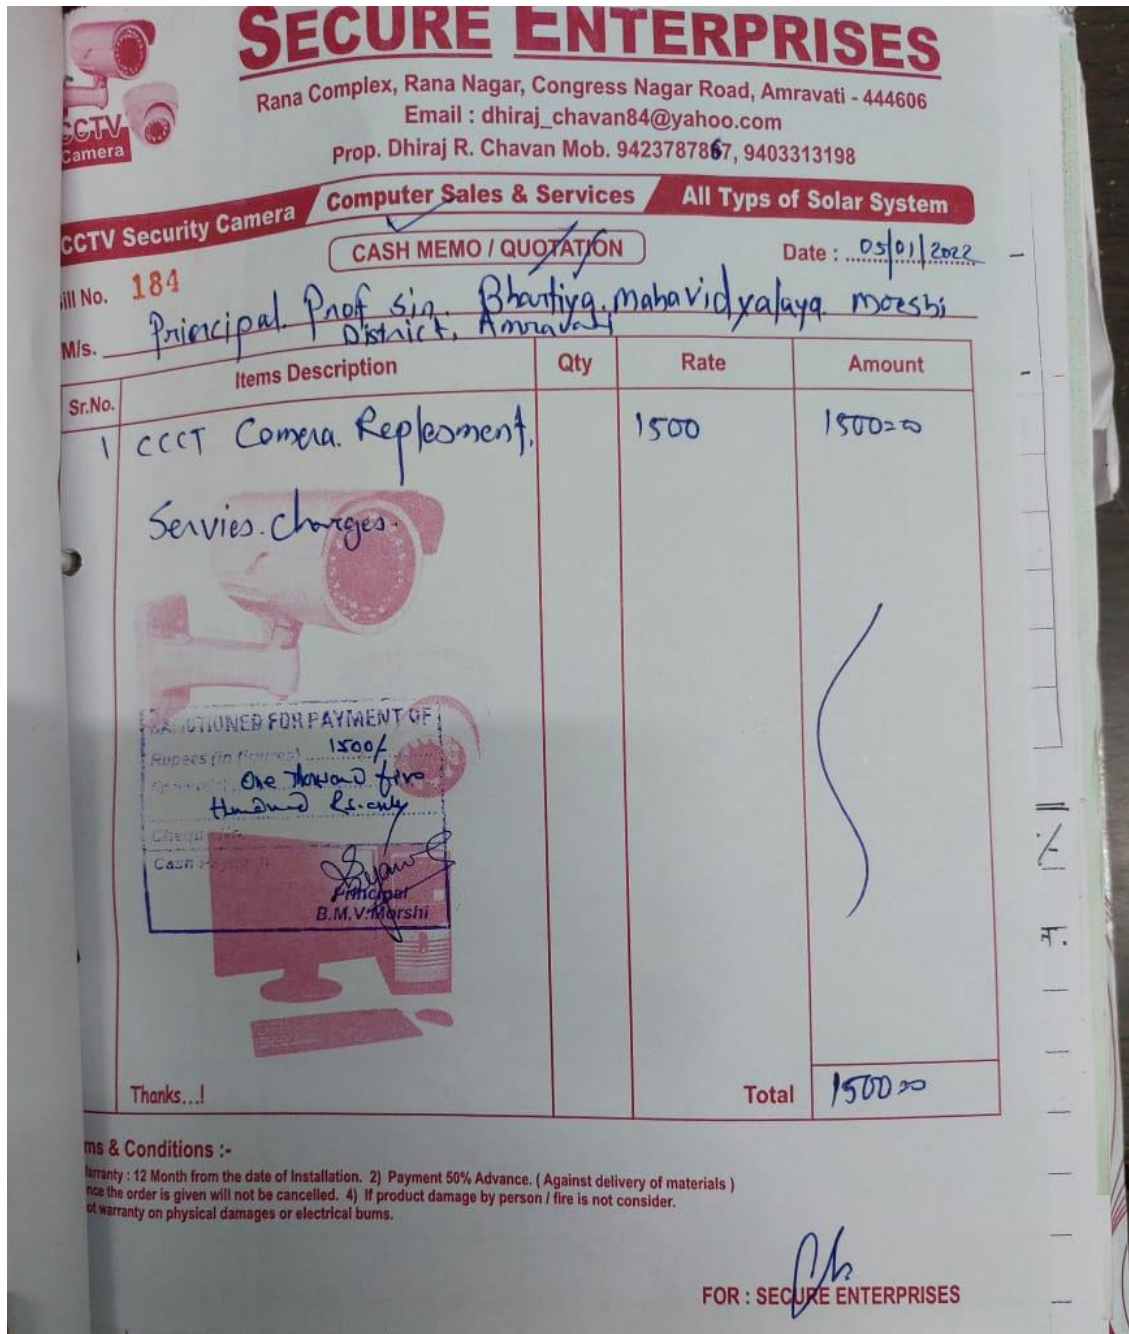 SECURE ENTERPRISES
Rana Complex, Rana Nagar, Congress Nagar Road, Amravati - 444606
Email : dhiraj_chavan84@yahoo.com
Prop. Dhiraj R. Chavan Mob. 9423787867, 9403313198
CCTV
Camera
CCTV Security Camera Computer Sales & Services All Typs of Solar System
CASH MEMO / QUOTATION Date : 05/01/2022
ill No. 184
M/s. Principal. Prof sin. Bhartiya mahavidyalaya. Morshi
District, Amravati
Sr.No. Items Description Qty Rate Amount
1 CCCT Camera. Replesment. 1500 1500=00
Servies. Charges.
SANCTIONED FOR PAYMENT OF
Rupees (in figures) 1500/-
One Thousand five
Hundred Rs. only
Cash
Principal
B.M.V. Morshi
Thanks...! Total 1500=00
ms & Conditions :-
arranty : 12 Month from the date of Installation. 2) Payment 50% Advance. ( Against delivery of materials )
nce the order is given will not be cancelled. 4) If product damage by person / fire is not consider.
ot warranty on physical damages or electrical burns.
FOR : SECURE ENTERPRISES